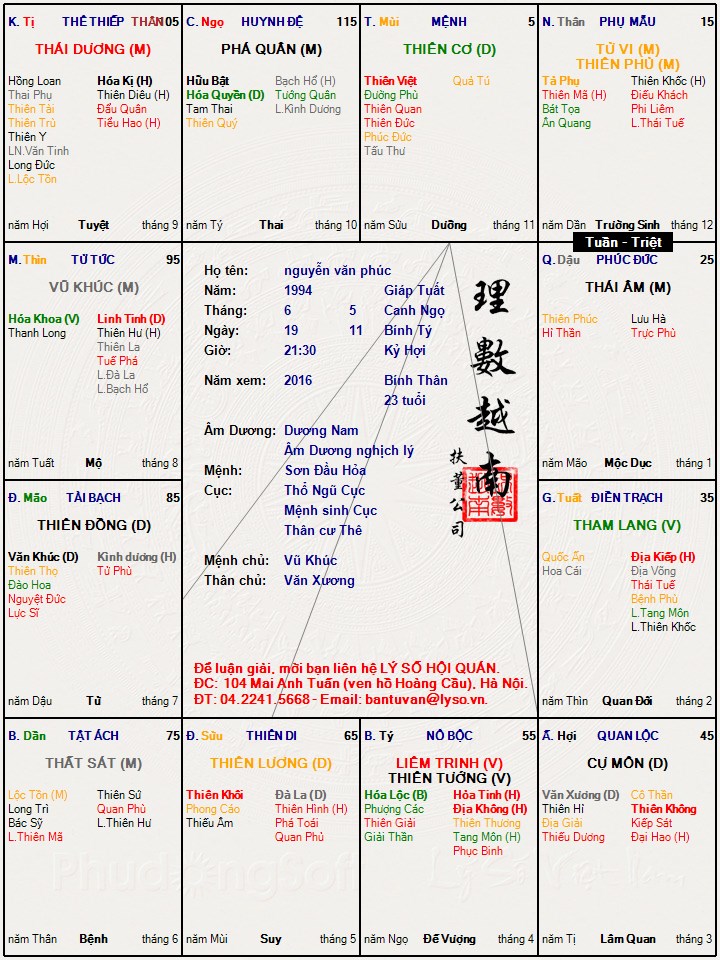 K. Tị THÊ THIẾP THÂN 105
THÁI DƯƠNG (M)
Hồng Loan Hóa Kị (H)
Thai Phụ Thiên Diêu (H)
Thiên Tài Đẩu Quân
Thiên Trù Tiểu Hao (H)
Thiên Y
LN.Văn Tinh
Long Đức
L.Lộc Tồn
năm Hợi Tuyệt tháng 9
C. Ngọ HUYNH ĐỆ 115
PHÁ QUÂN (M)
Hữu Bật Bạch Hổ (H)
Hóa Quyền (D) Tướng Quân
Tam Thai L.Kình Dương
Thiên Quý
năm Tý Thai tháng 10
T. Mùi MỆNH 5
THIÊN CƠ (D)
Thiên Việt Quả Tú
Đường Phù
Thiên Quan
Thiên Đức
Phúc Đức
Tấu Thư
năm Sửu Dưỡng tháng 11
N. Thân PHỤ MẪU 15
TỬ VI (M)
THIÊN PHỦ (M)
Tả Phụ Thiên Khốc (H)
Thiên Mã (H) Điếu Khách
Bát Tọa Phi Liêm
Ân Quang L.Thái Tuế
năm Dần Trường Sinh tháng 12
Tuần - Triệt
M. Thìn TỬ TỨC 95
VŨ KHÚC (M)
Hóa Khoa (V) Linh Tinh (D)
Thanh Long Thiên Hư (H)
Thiên La
Tuế Phá
L.Đà La
L.Bạch Hổ
năm Tuất Mộ tháng 8
Họ tên: nguyễn văn phúc
Năm: 1994 Giáp Tuất
Tháng: 6 5 Canh Ngọ
Ngày: 19 11 Bính Tý
Giờ: 21:30 Kỷ Hợi
Năm xem: 2016 Bính Thân
23 tuổi
Âm Dương: Dương Nam
Âm Dương nghịch lý
Mệnh: Sơn Đầu Hỏa
Cục: Thổ Ngũ Cục
Mệnh sinh Cục
Thân cư Thê
Mệnh chủ: Vũ Khúc
Thân chủ: Văn Xương
理數越南
扶董公司
Để luận giải, mời bạn liên hệ LÝ SỐ HỘI QUÁN.
ĐC: 104 Mai Anh Tuấn (ven hồ Hoàng Cầu), Hà Nội.
ĐT: 04.2241.5668 - Email: bantuvan@lyso.vn.
Q. Dậu PHÚC ĐỨC 25
THÁI ÂM (M)
Thiên Phúc Lưu Hà
Hỉ Thần Trực Phù
năm Mão Mộc Dục tháng 1
Đ. Mão TÀI BẠCH 85
THIÊN ĐỒNG (D)
Văn Khúc (D) Kình dương (H)
Thiên Thọ Tử Phù
Đào Hoa
Nguyệt Đức
Lực Sĩ
năm Dậu Tử tháng 7
G. Tuất ĐIỀN TRẠCH 35
THAM LANG (V)
Quốc Ấn Địa Kiếp (H)
Hoa Cái Địa Võng
Thái Tuế
Bệnh Phù
L.Tang Môn
L.Thiên Khốc
năm Thìn Quan Đới tháng 2
B. Dần TẬT ÁCH 75
THẤT SÁT (M)
Lộc Tồn (M) Thiên Sứ
Long Trì Quan Phù
Bác Sỹ L.Thiên Hư
L.Thiên Mã
năm Thân Bệnh tháng 6
Đ. Sửu THIÊN DI 65
THIÊN LƯƠNG (D)
Thiên Khôi Đà La (D)
Phong Cáo Thiên Hình (H)
Thiếu Âm Phá Toái
Quan Phủ
năm Mùi Suy tháng 5
B. Tý NÔ BỘC 55
LIÊM TRINH (V)
THIÊN TƯỚNG (V)
Hóa Lộc (B) Hỏa Tinh (H)
Phượng Các Địa Không (H)
Thiên Giải Thiên Thương
Giải Thần Tang Môn (H)
Phục Binh
năm Ngọ Đế Vượng tháng 4
Ấ. Hợi QUAN LỘC 45
CỰ MÔN (D)
Văn Xương (D) Cô Thần
Thiên Hỉ Thiên Không
Địa Giải Kiếp Sát
Thiếu Dương Đại Hao (H)
năm Tị Lâm Quan tháng 3